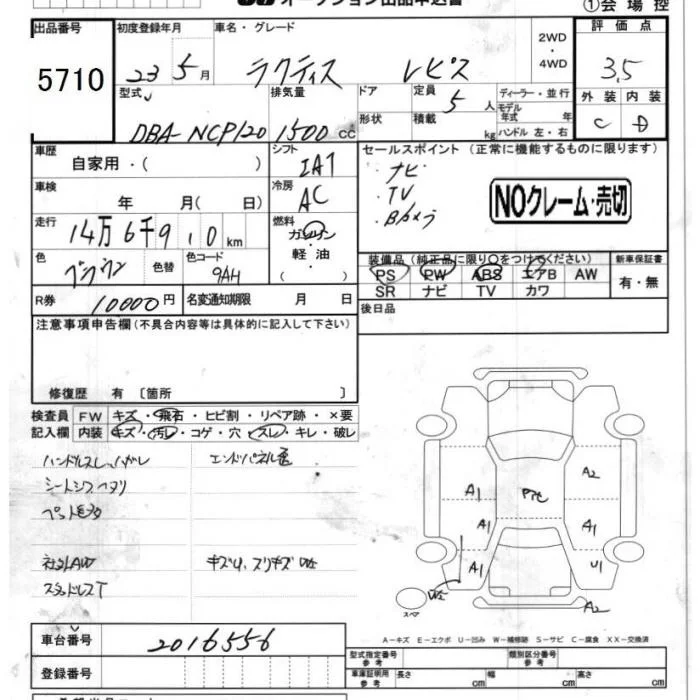 オークション出品申込書
①会場控
出品番号
5710
初度登録年月
23 5月
車名・グレード
ラクティス レピス
2WD
・
4WD
評価点
3.5
外装 内装
C D
型式
DBA-NCP120
排気量
1500 cc
ドア
形状
定員
5人
積載
kg
ディーラー・並行
モデル
年式 年
ハンドル 左・右
車歴
自家用・( )
シフト
IAT
セールスポイント (正常に機能するものに限ります)
ナビ
TV
Bカメラ
NOクレーム・売切
車検
年 月( 日)
冷房
AC
走行
14万6千9 10 km
燃料
ガソリン
・
軽油
( )
色
色替
色コード
9AH
装備品(純正品に限り○をつけてください)
PS PW ABS エアB AW
SR ナビ TV カワ
新車保証書
有・無
R券
10000円
名変通知期限 月 日
後日品
注意事項申告欄(不具合内容等は具体的に記入して下さい)
修復歴 有 〔箇所 〕
検査員
記入欄
FW キズ・飛石・ヒビ割・リペア跡・×要
内装 キズ・汚レ・コゲ・穴・スレ・キレ・破レ
ハンドルスレ、ハガレ
エンドパネル歪
シートシワ ヘタリ
社外AW
キズU、スリキズ W2
スタッドレスT
A1
A1
A1
A2
A1
U1
A2
W2
スペア
A-キズ E-エクボ U-凹み W-補修跡 S-サビ C-腐食 XX-交換済
車台番号
2016556
登録番号
型式指定番号
参考
類別区分番号
参考
車庫証明用
参考
長さ cm
幅 cm
高さ cm